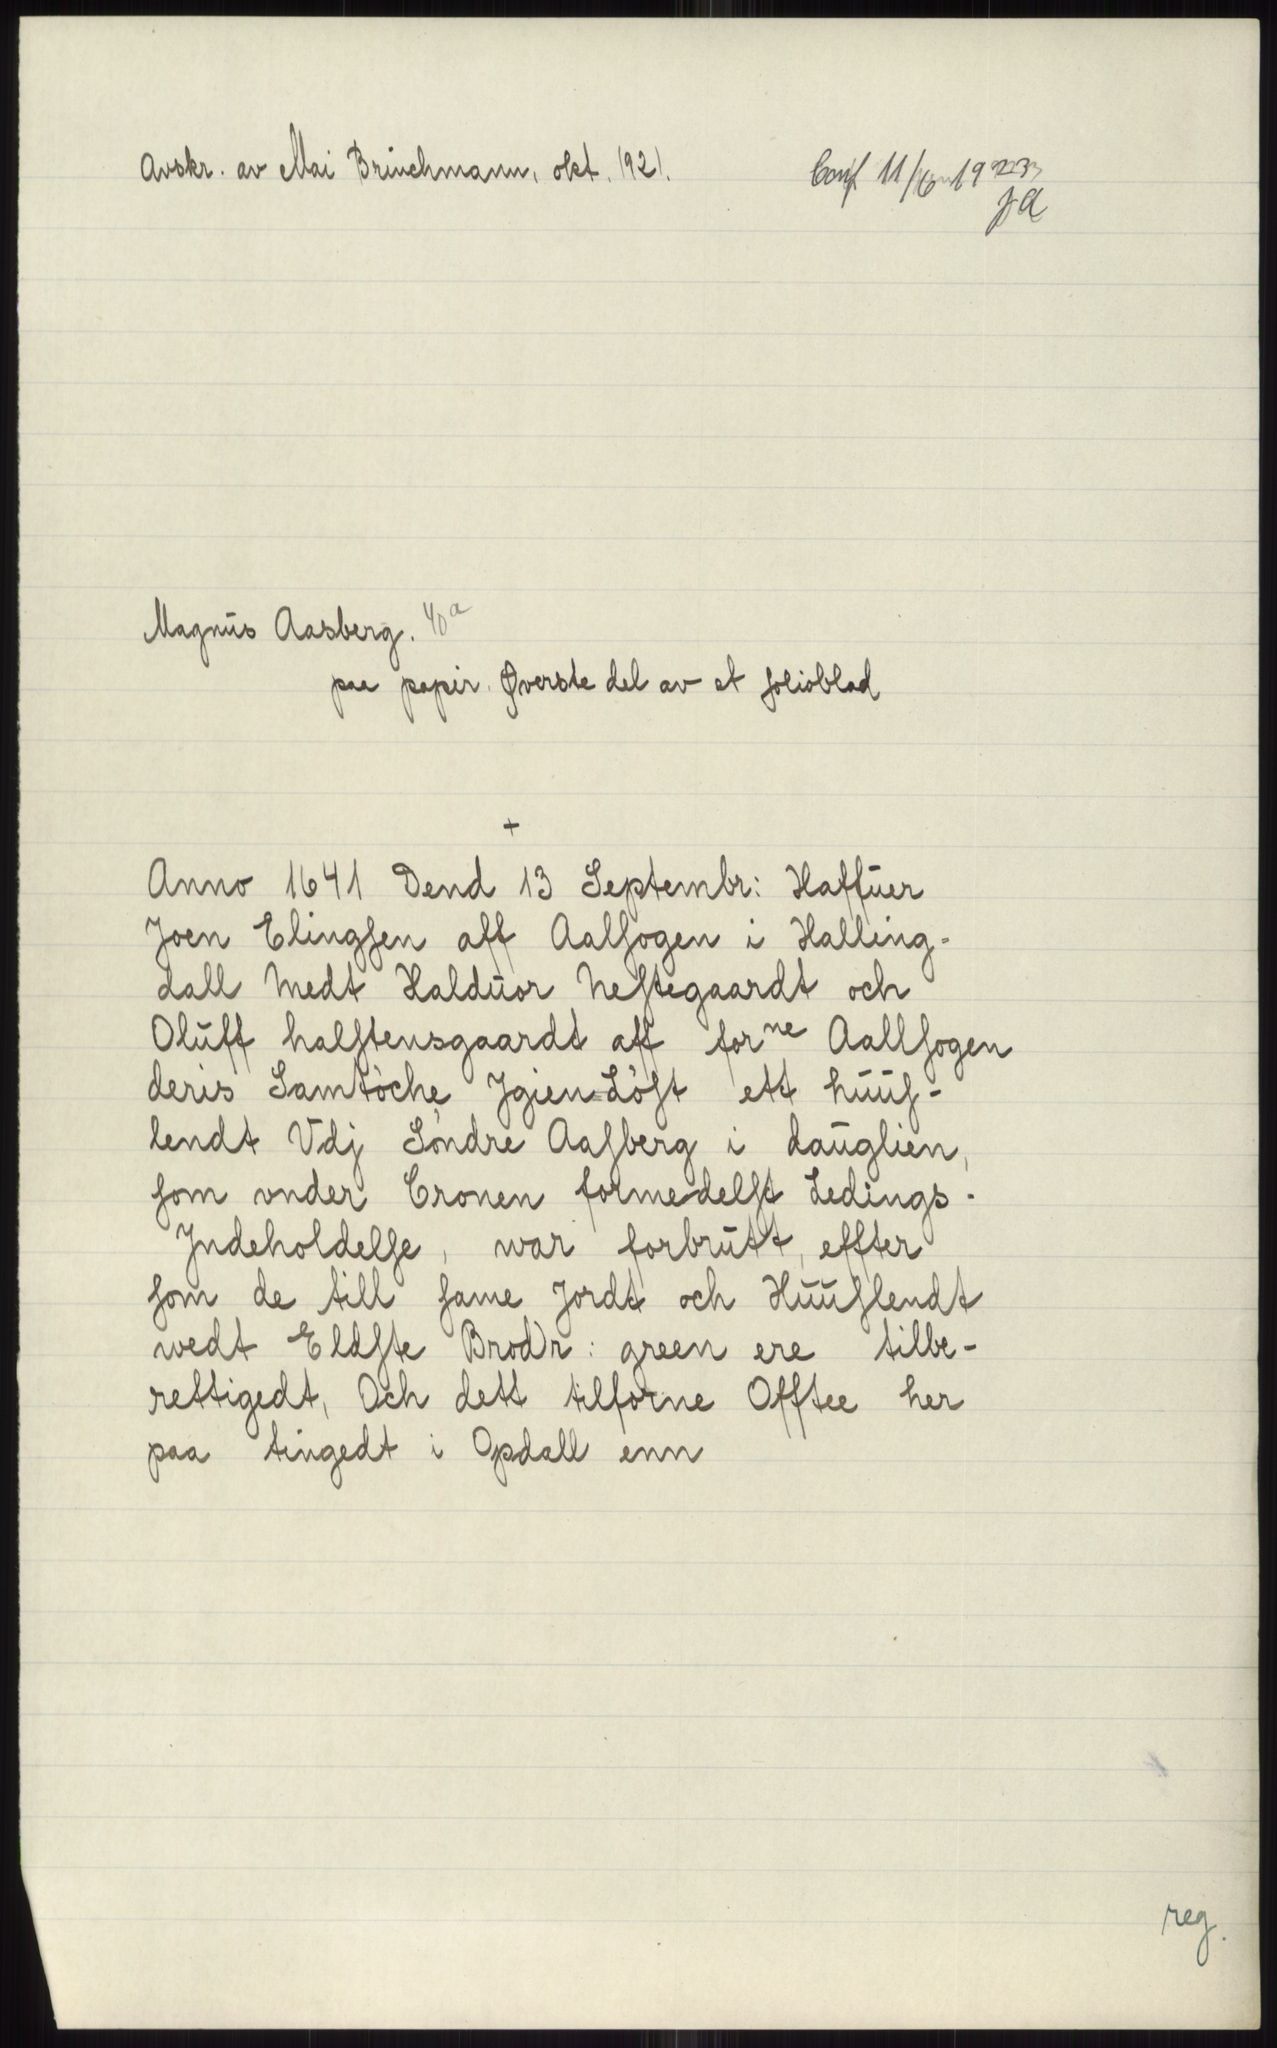 Avskr. av Mai Brinchmann, okt. 1921.
Conf 11/6 1923
JA
Magnus Aasberg.
paa papir. Øverste del av et folioblad
+
Anno 1641 Dend 13 Septembr: Haffuer
Joen Elingsen aff Aalsogen i Halling-
dall medt Halduor Nestegaardt och
Oluff halstensgaardt aff forne Aallsogen
deris Samtöche Jgien-Löst ett huus-
lendt Vdj Söndre Aasberg i dauglien,
som vnder Cronen formedelst Ledings-
Jndeholdelse, war forbrutt, effter
som de till same Jordt och Huuslendt
wedt Eldste Brodr: green ere tilbe-
rettigedt, Och dett tilforne Offtee her
paa tingedt i Opdall enn
reg.